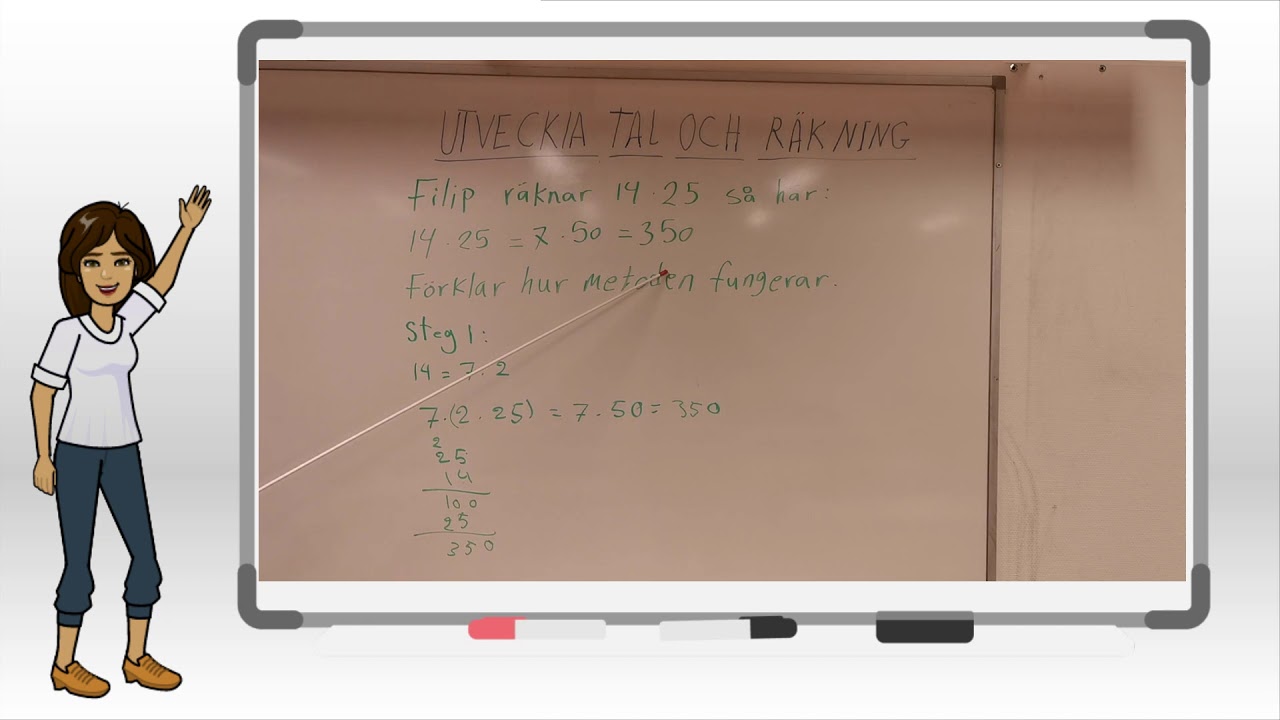 UTVECKLA TAL OCH RÄKNING
Filip räknar 14 · 25 så här:
14 · 25 = 7 · 50 = 350
Förklar hur metoden fungerar.
Steg 1:
14 = 7 · 2
7 · (2 · 25) = 7 · 50 = 350
2
25
14
100
25
350